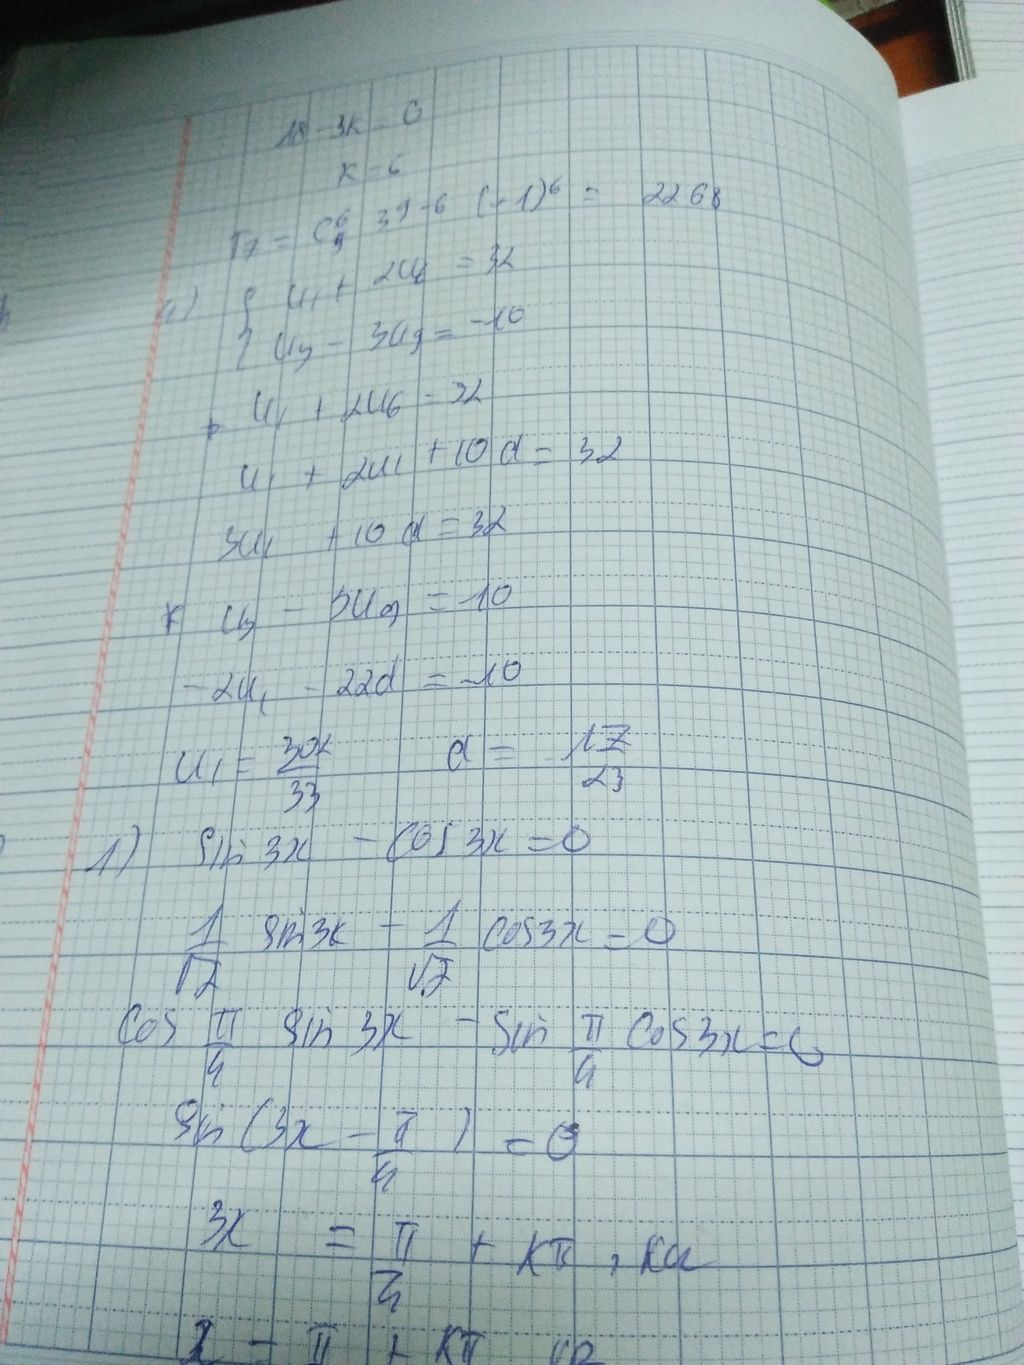 18 - 3k = 0
k = 6
T7 = C⁶₉ 3⁹⁻⁶ (-1)⁶ = 2268
{ u₁ + 2u₆ = 32
u₃ - 3u₉ = -10
u₁ + 2u₆ = 32
u₁ + 2u₁ + 10d = 32
3u₁ + 10d = 32
* u₃ - 3u₉ = -10
-2u₁ - 22d = -10
u₁ = /23 d = -17/23
1) sin 3x - cos 3x = 0
1/√2 sin 3x - 1/√2 cos 3x = 0
cos π/4 sin 3x - sin π/4 cos 3x = 0
sin(3x - π/4) = 0
3x = π/4 + kπ, k
x = π + kπ